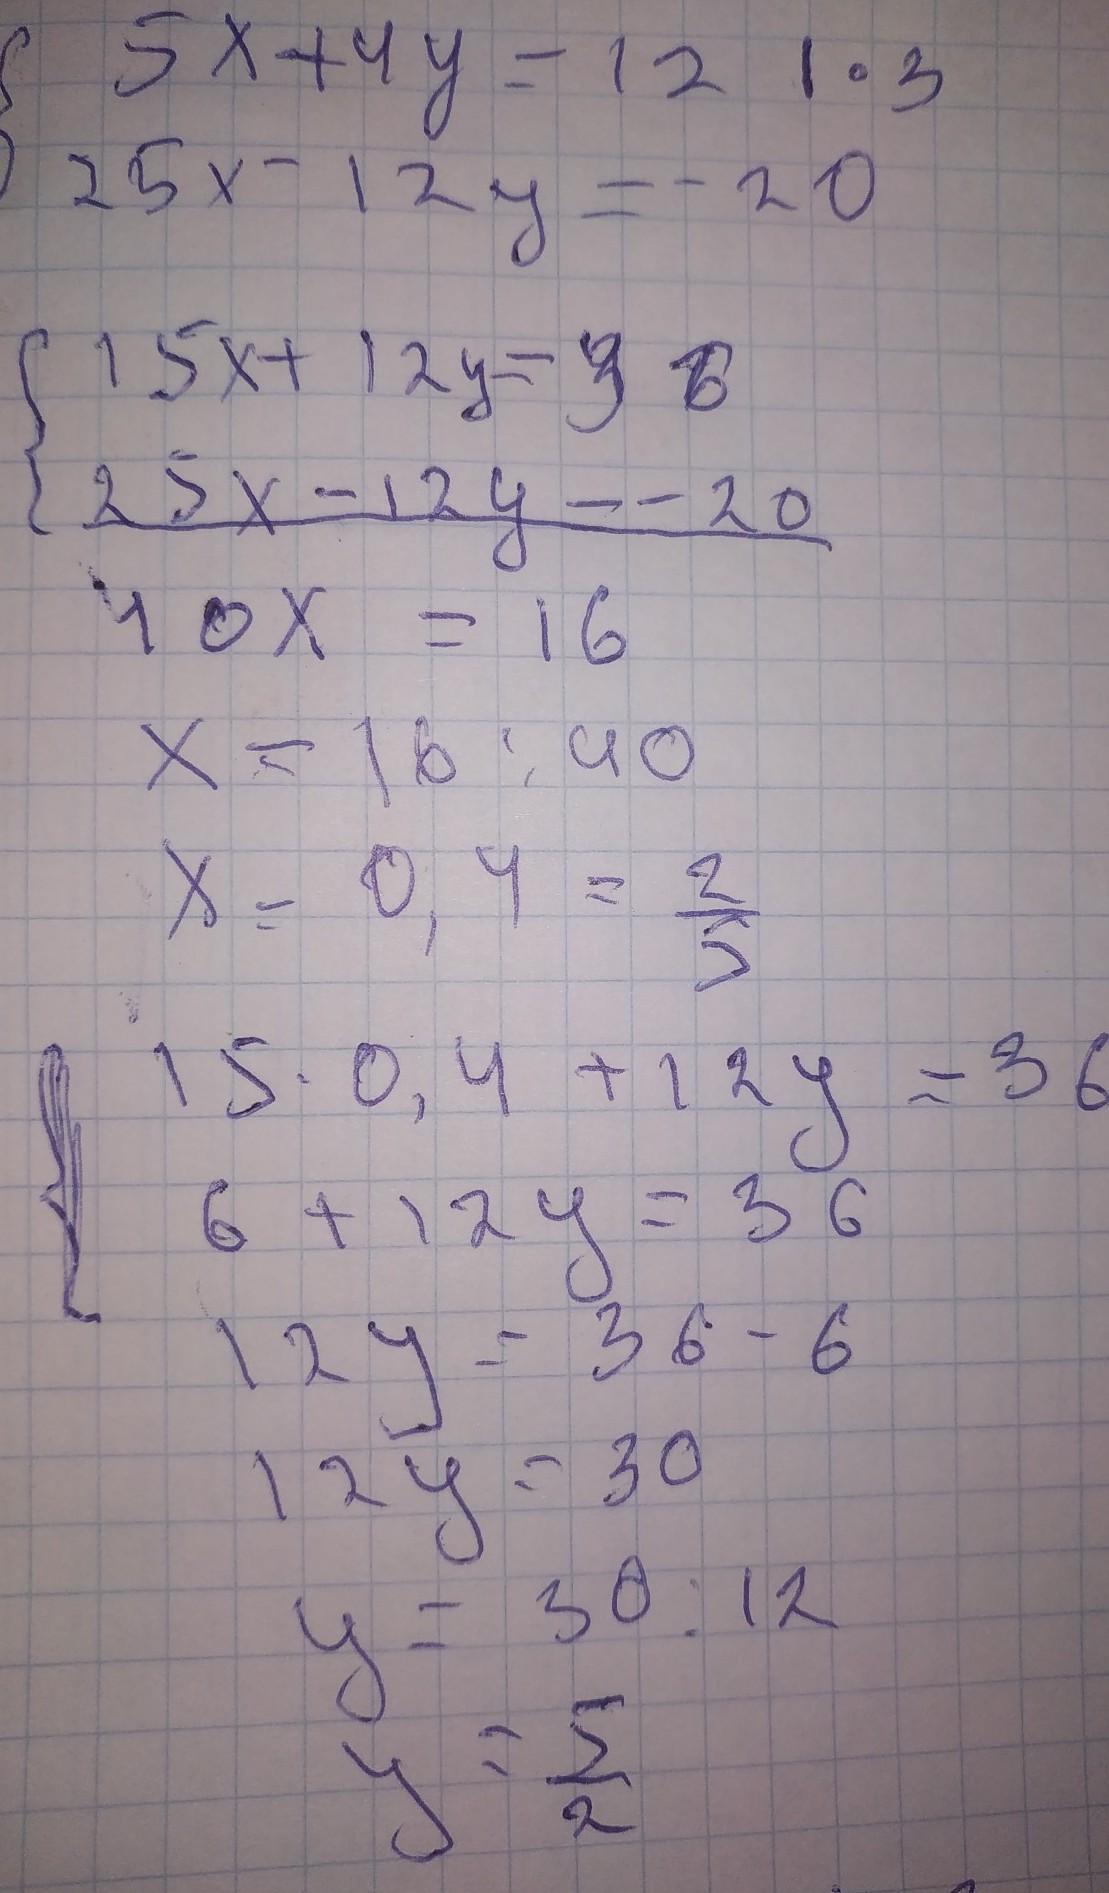 5x+4y=12 |·3
25x-12y=-20
15x+12y=36
25x-12y=-20
40x=16
x=16:40
x=0,4=2/5
15·0,4+12y=36
6+12y=36
12y=36-6
12y=30
y=30:12
y=5/2